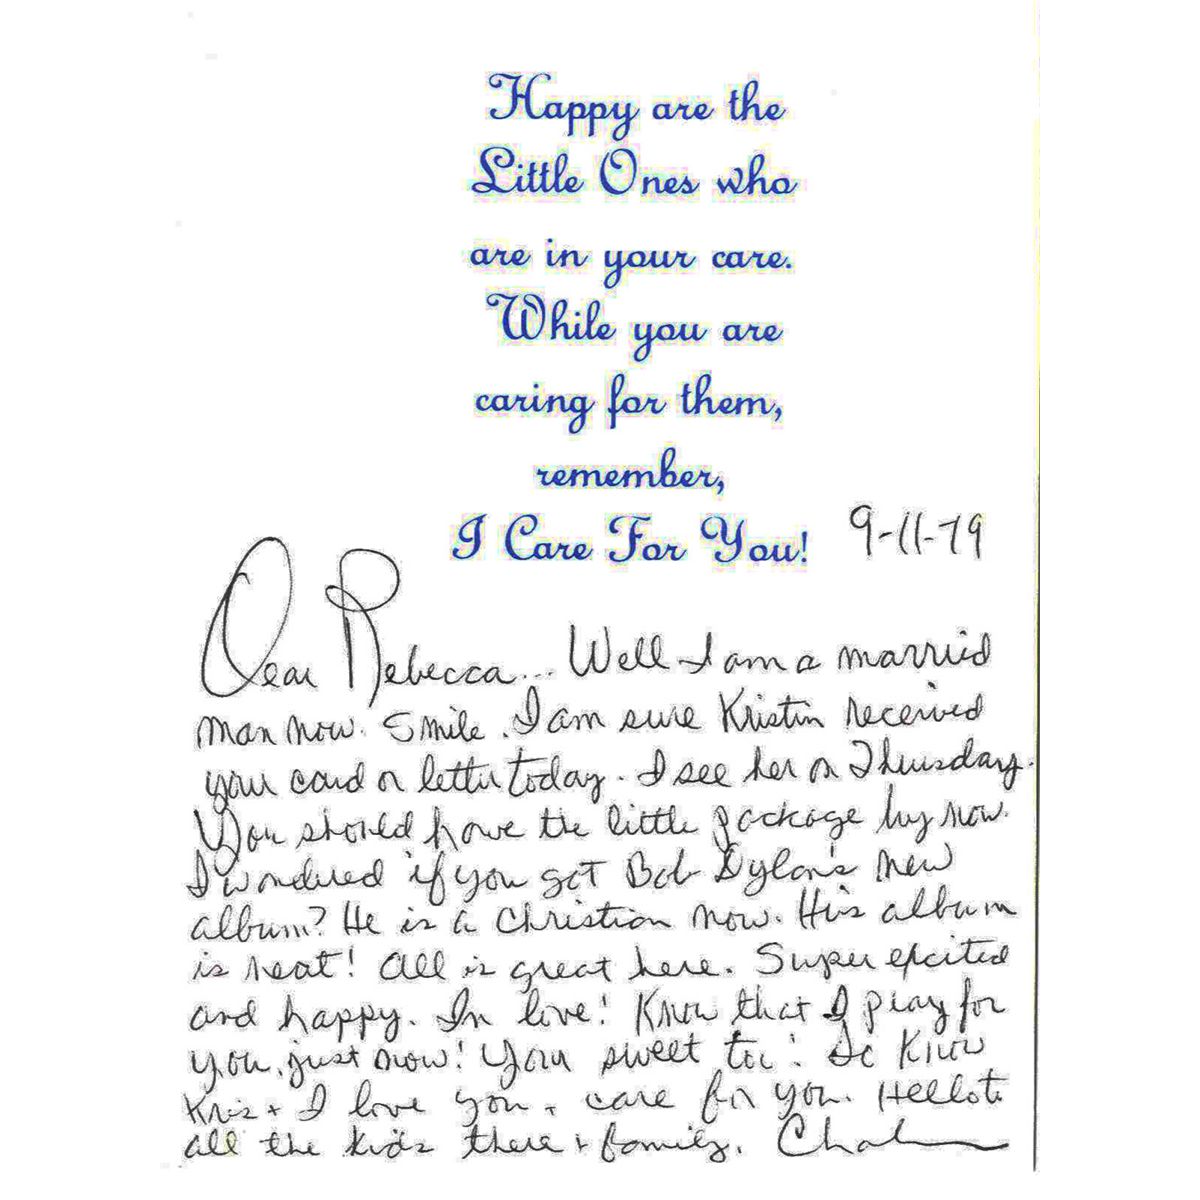 Happy are the
Little Ones who
are in your care.
While you are
caring for them,
remember,
I Care For You!
9-11-79
Dear Rebecca... Well I am a married
man now. Smile. I am sure Kristin received
your card or letter today. I see her on Thursday.
You should have the little package by now.
I wondered if you got Bob Dylan's new
album? He is a Christian now. His album
is neat! All is great here. Super excited
and happy. In love! Know that I pray for
you, just now! Your sweet too! Do Know
Kris + I love you + care for you. Hello to
all the kids there + family.